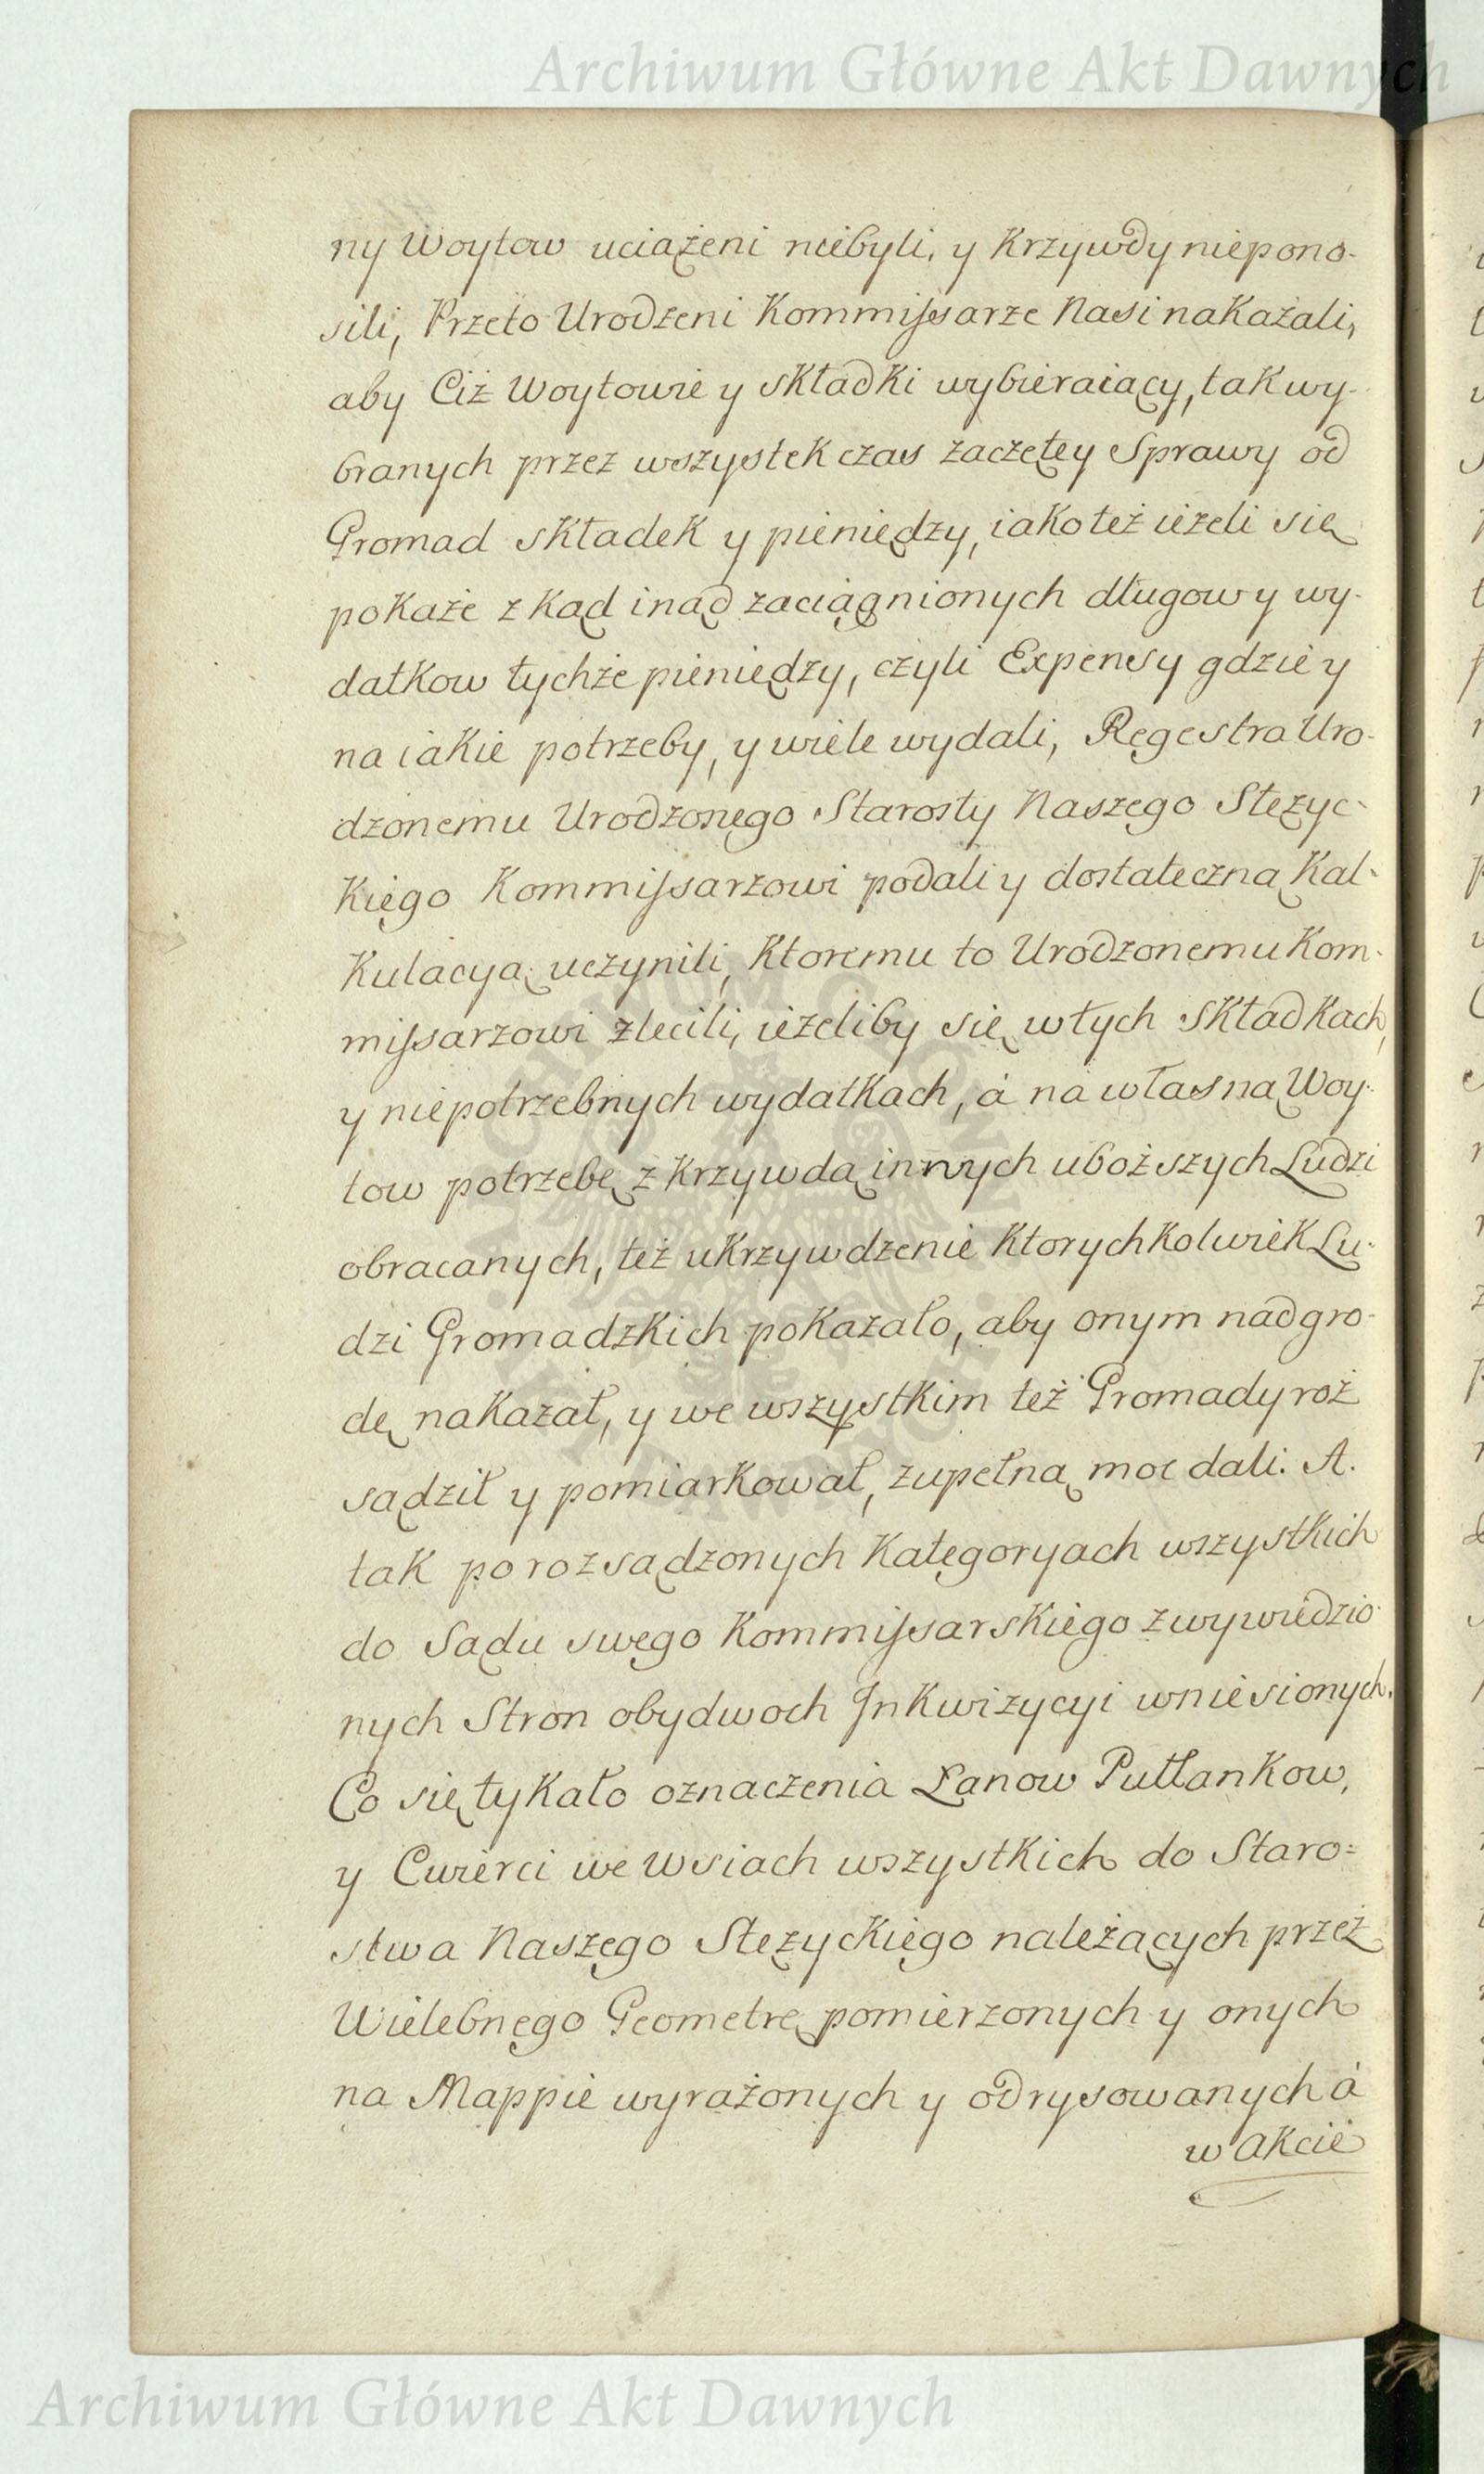 Archiwum Główne Akt Dawnych
ny Woytow uciążeni niebyli, y Krzywdy niepono-
sili, Przeto Urodzeni Kommissarze Nasi nakazali,
aby Ciż Woytowie y składki wybieraiący, tak wy-
branych przez wszystek czas zaczętey Sprawy od
Gromad składek y pieniędzy, iako też ieżeli się
pokaże z kąd inąd zaciągnionych długow y wy-
datkow tychże pieniędzy, czyli Expensy gdzie y
na iakie potrzeby, y wiele wydali, Regestra Uro-
dzonemu Urodzonego Starosty Naszego Stężyc-
kiego Kommissarzowi podali y dostateczną Kal-
kulacyą uczynili, Ktoremu to Urodzonemu Kom-
missarzowi zlecili, ieżeliby się w tych Składkach,
y niepotrzebnych wydatkach, á na własną Woy-
tow potrzebę z krzywdą innych uboższych Ludzi
obracanych, też ukrzywdzenie ktorychkolwiek Lu-
dzi Gromadzkich pokazało, aby onym nadgro-
dę nakazał, y we wszystkim też Gromady roz
sądził y pomiarkował, zupełną moc dali. A.
tak po rozsądzonych Kategoryach wszystkich
do Sądu swego Kommissarskiego z wywiedzio-
nych Stron obydwoch Inkwizycyi wniesionych.
Co się tykało oznaczenia Łanow Pułłankow,
y Cwierci we Wsiach wszystkich do Staro=
stwa Naszego Stężyckiego należących przez
Wielebnego Geometrę pomierzonych y onych
na Mappie wyrażonych y odrysowanych á
w Akcie
Archiwum Główne Akt Dawnych